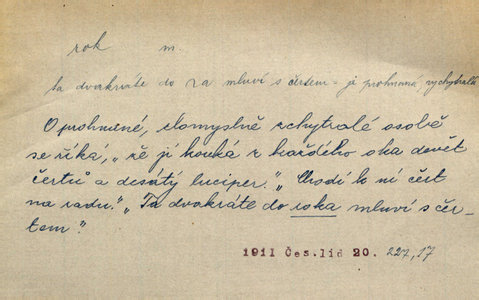 rok m.
ta dvakráte do ra mluví s čertem = je prohnaná, vychytralá
O prohnané, zlomyslně zchytralé osobě
se říká, „že jí kouká z každého oka devět
čertů a desátý luciper." „Chodí k ní čert
na radu." „Ta dvakráte do roka mluví s čer-
tem".
1911 Čes. lid 20. 227,17